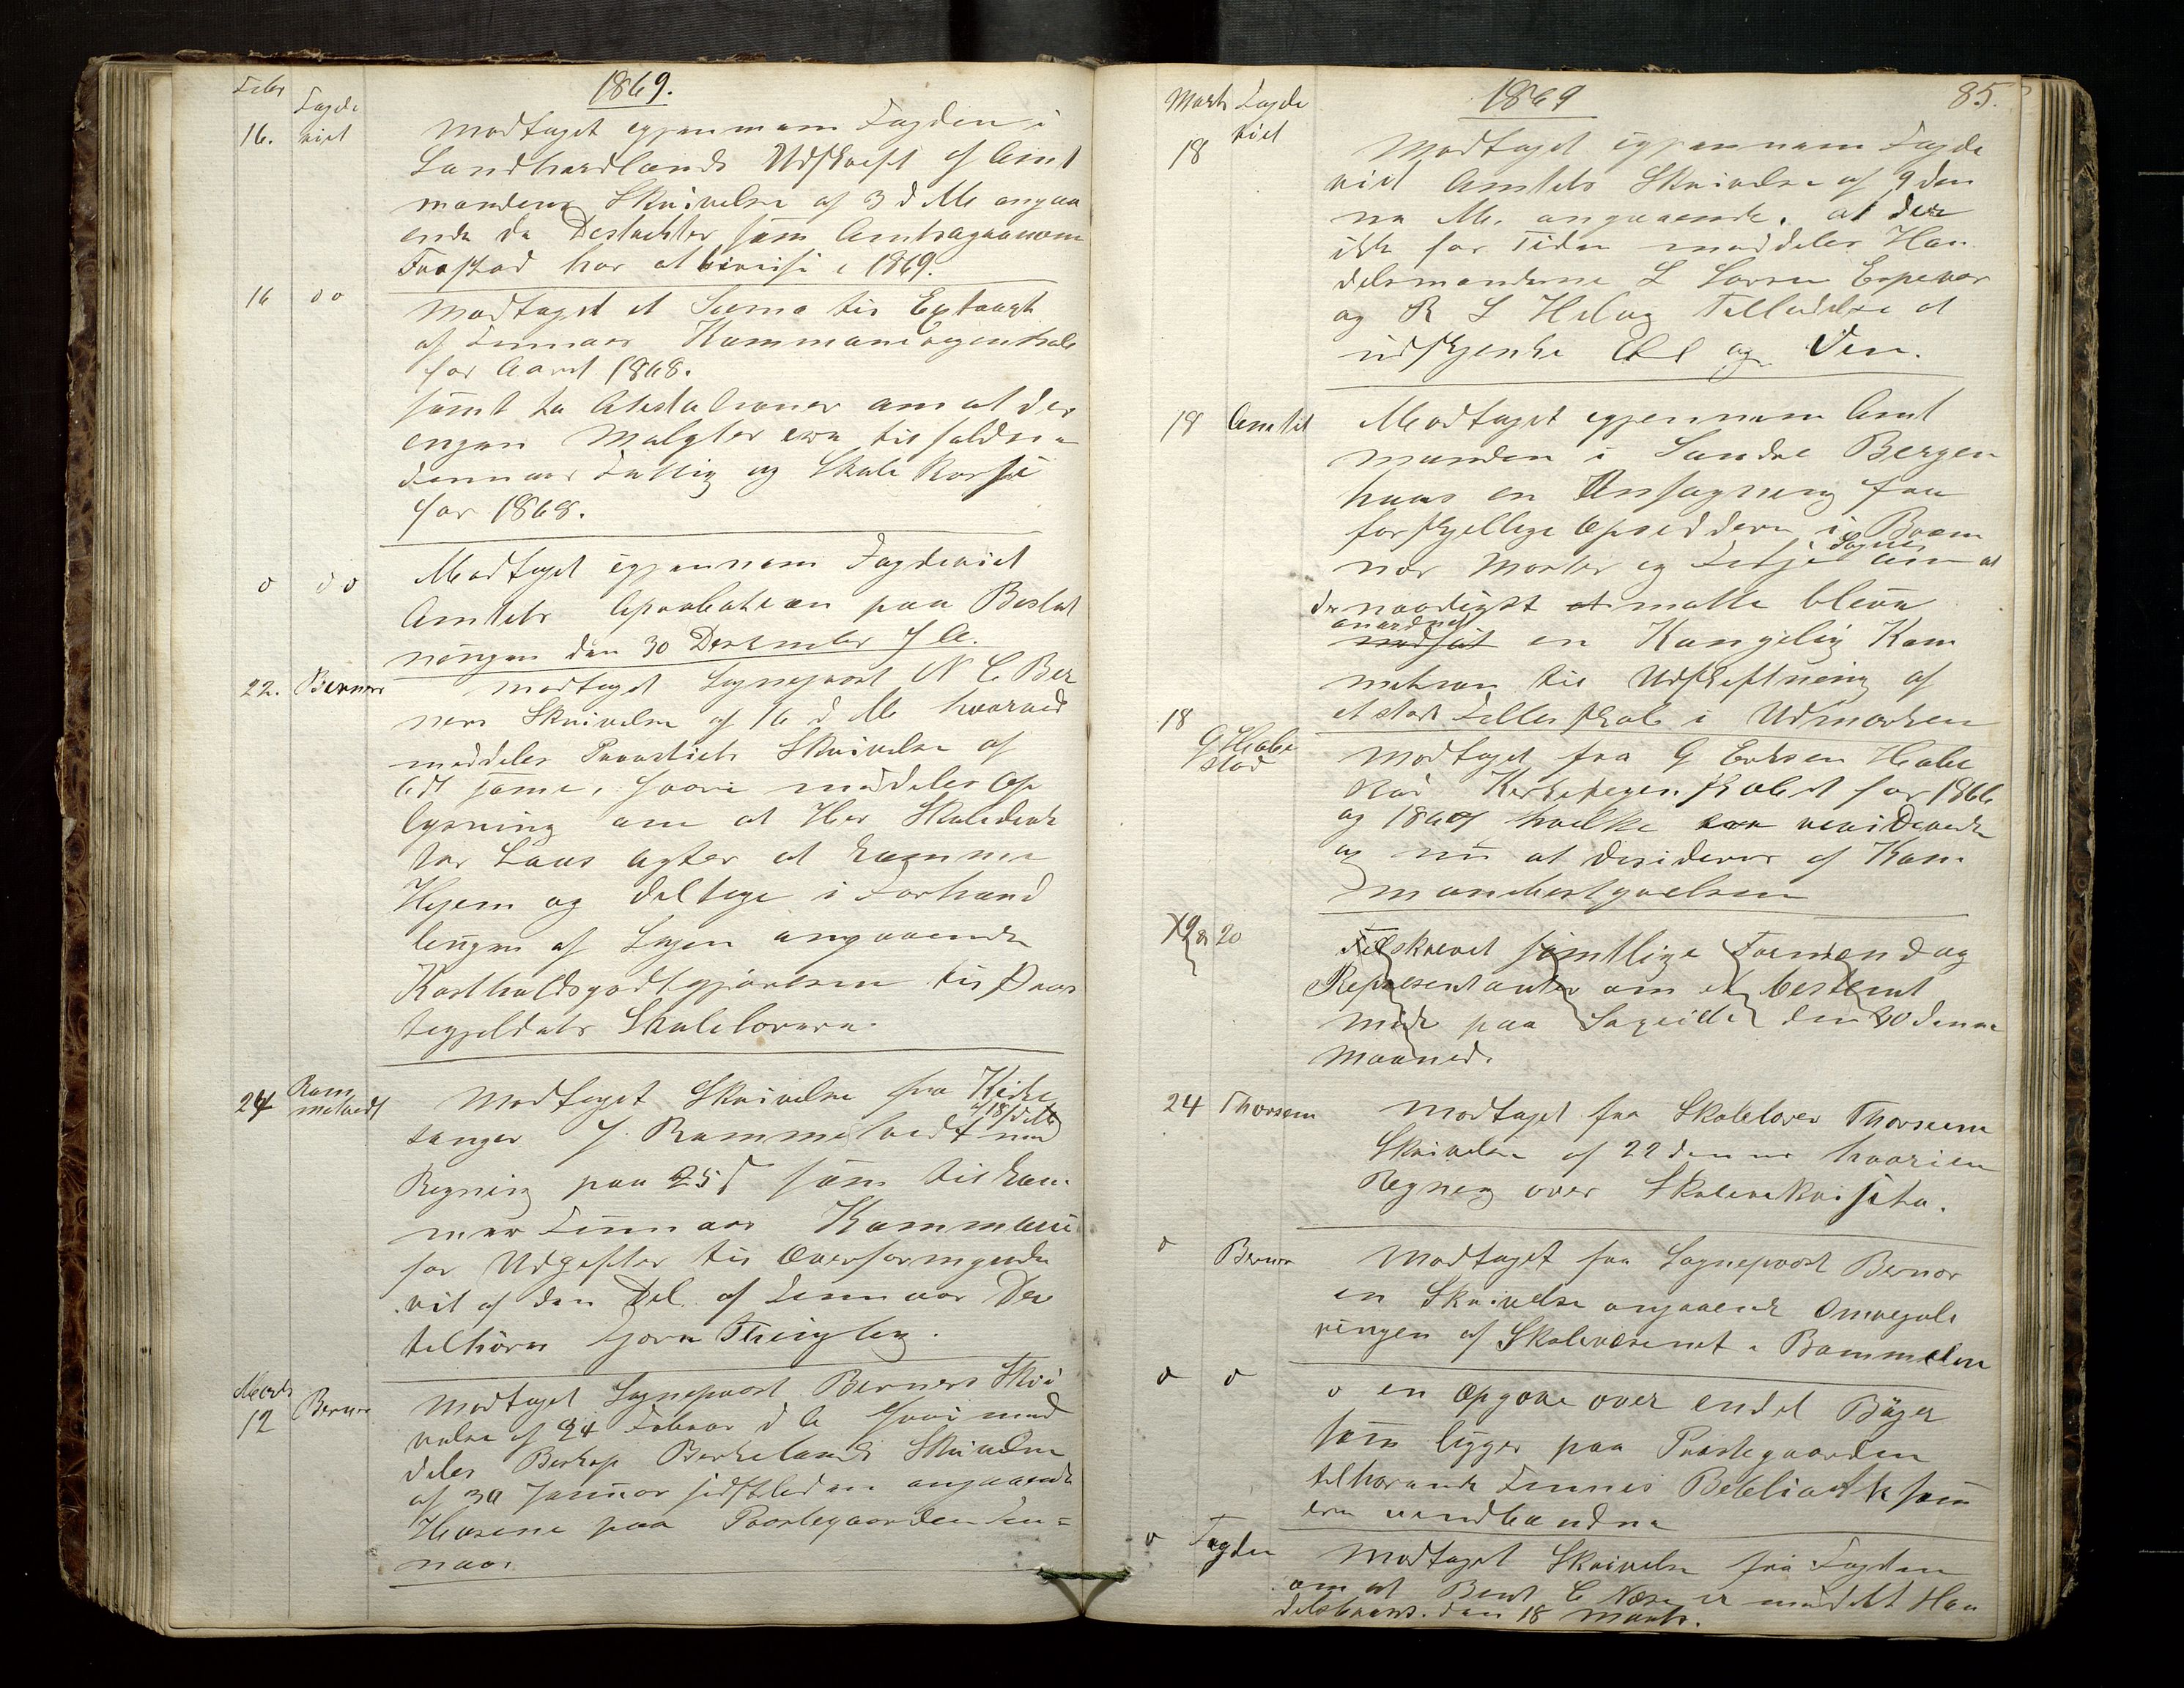 Febr
1869.
16. Fogde
riet
Modtaget igjennem Fogden i
Sundhordlands Udskrift af Amt
mandens Skrivelse af 3 d M angaa
ende de Distrikter som Amtsagronom
Frostad har at bereise i 1869.
16 do
Modtaget et Sema til Extragt
af Finnaas Kommuneregnskab
for Aaret 1868.
samt to Atestationer om at der
ingen Mulgter ere tilfaldne
Finnaas Fattig og Skole Kasse
for 1868.
o do
Modtaget igjennem Fogderiet
Amtets Aprobation paa Beslut
ningen den 30 Desember f A.
22. Berner
Modtaget Sogneprest N C Ber
ners Skrivelse af 16 d M hvorved
meddeles Provstiets Skrivelse af
6dt samme, hvori meddeles Op
lysning om at Her Skoledirek
tør Laus agter at komme
Hjem og deltage i Forhand
lingen af Sagen angaaende
Kostholdsgodtgjørelsen til Præs
tegjeldets Skolelærere.
24 Rom
metvedt
Modtaget Skrivelse fra Kirke
af 18/ d M
sanger J. Rommetvedt med
Regning paa 25 som tilkom
mer Finnaas Kommune
for Udgifter til Overformynde
riet af den Del af Finnaas Der
tilhører Fjære Thinglag.
Marts
12 Berner
Modtaget Sogneprest Berners Skri
velse af 24 Februar d A hvori med
deles Biskop Birkelands Skrivelse
af 30 Januar sidstleden angaaende
Husene paa Præstegaarden Fin=
naas.
Marts Fogde
riet
1869
85.
18
Modtaget igjennem Fogde
riet Amtets Skrivelse af 9 den
ne M. angaaende. at der
ikke for Tiden meddeles Han
delsmændene L Larsen Espevær
og R L Hilag Tilladelse at
udskjenke Øl og Vin.
18 Amtet
Modtaget igjennem Amt
manden i Søndre Bergen
huus en Ansøgning fra
forskjellige Opsiddere i Brem
Sogne
nes Moster og Fitje om at
der naadigst at maatte blive
anordnet
nedsat en Kongelig Kom
mision til Udskiftning af
et stort Fellesskab i Udmarken
18 G Habe
stad
Modtaget fra G Eriksen Habe
stad Kirkeregnskabet for 1866
og 1867 hvilke ere reviderede
og nu at desideres af Kom
munebestyrelsen
19 & 20
Tilskrevet samtlige Formænd og
Representanter om et bestemt
Møde paa Sagvidet den 30 denne
Maaned.
24 Thorsen
Modtaget fra Skolelærer Thorsen
Skrivelse af 22 dennes hvori en
Regneg over Skolerekvisita.
o Berner
Modtaget fra Sogneprest Berner
en Skrivelse angaaende Omregule
ringen af Skolevæsenet i Bømmeløen
o o
o en Opgave over endel Bøger
som ligger paa Præstegaarden
tilhørende Finnes Bibliothek som
ere uindbundne
o Fogden
Modtaget Skrivelse fra Fogden
om at Bent C Næse er meddelt Han
delsbrev. den 18 Marts.